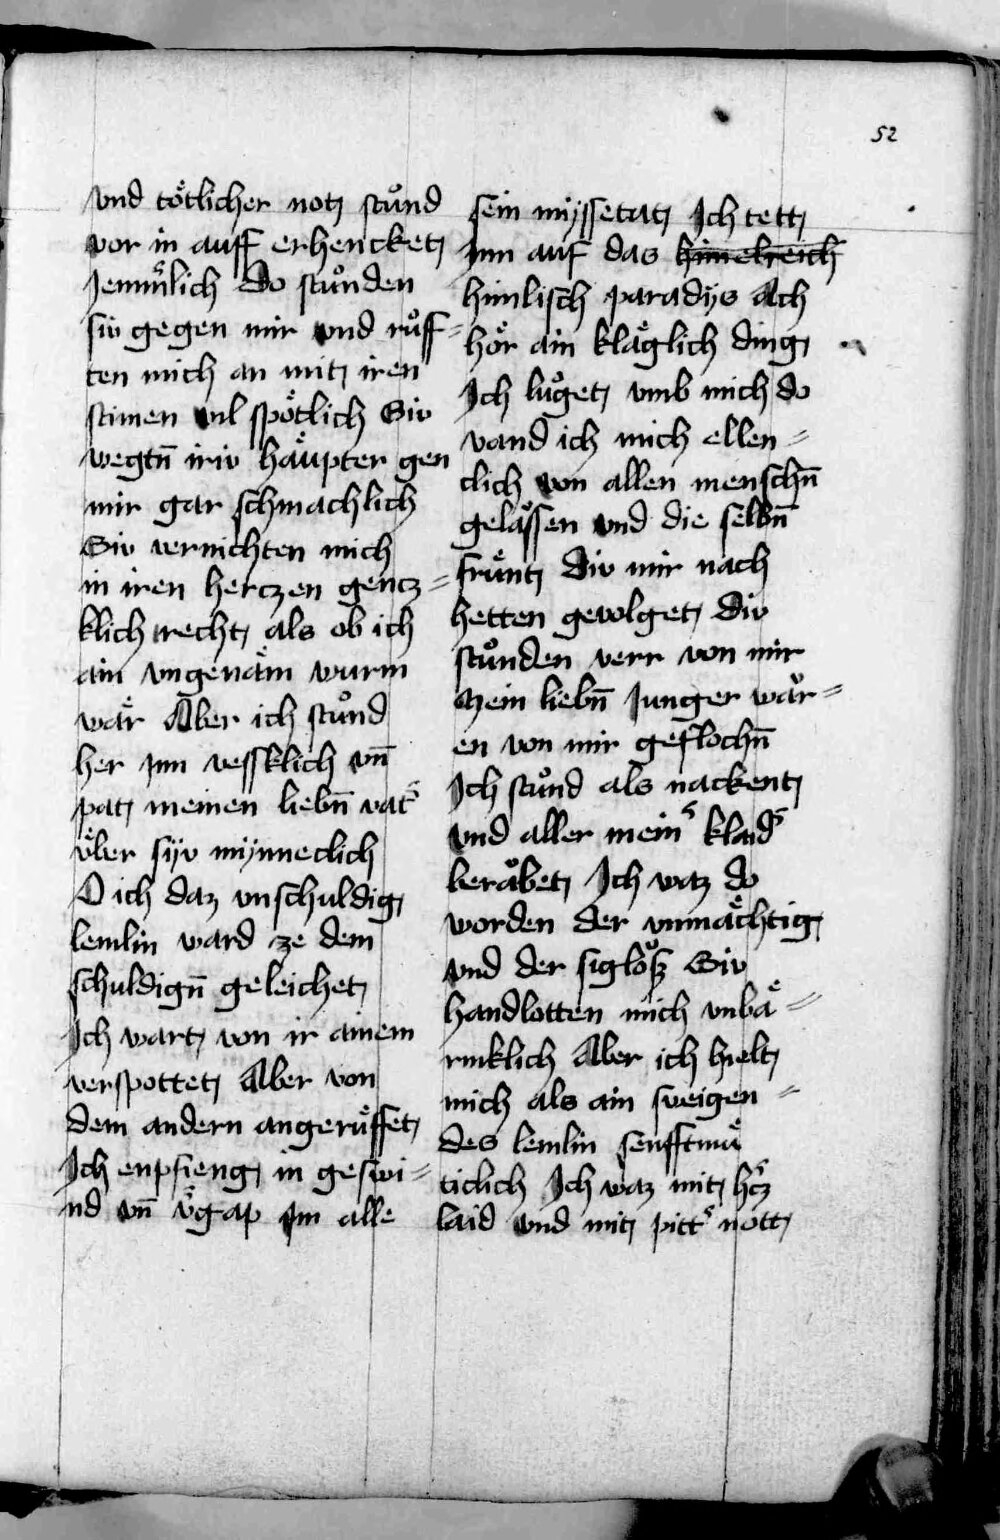 52
vnd toͤtlicher not stuͦnd
vor in auff erhencket
Jemͤnlich Do stuͦnden
siv gegen mir vnd ruͦff=
ten mich an mit iren
stimen vil spoͤtlich Siv
wegtn̄ iriv haͤupter gen
mir gar schmachlich
Siv vernichten mich
in iren herczen gencz=
klich recht als ob ich
ain vngenaͤm wurm
waͤr Aber ich stuͦnd
her inn vessklich vn̄
pat meinen liebn̄ vat͛
v̈ber siv mynneclich
O ich daz vnschuldig
lemlin ward ze dem
schuldign̄ geleichet
Ich wart von ir ainem
verspottet Aber von
dem andern angeruͤffet
Ich enpfieng in geswi=
nd vn̄ v̈gap Im alle
sein myssetat Ich tett
Inn auf das himelreich
himlisch paradys Ach
hoͤr ain klaͤglich ding
Ich luͦget vmb mich do
vand ich mich ellen=
clich von allen menschn̄
gelaͤssen vnd die selbn̄
fruͤnt Div mir nach
hetten gevolget Div
stuͦnden verr von mir
Mein liebn̄ Junger waͤr=
en von mir geflochn̄
Ich stuͦnd als nackent
vnd aller mein͛ klaid͛
beraͦbet Ich waz do
worden der vnmaͤchtig
vnd der sigloͦß Siv
handlotten mich vnbaͤ=
rmklich Aber ich hielt
mich als ain sweigen=
des lemlin senfftmuͤ
ticlich Ich waz mit hc͛z
laid vnd mit pitt͛ nott